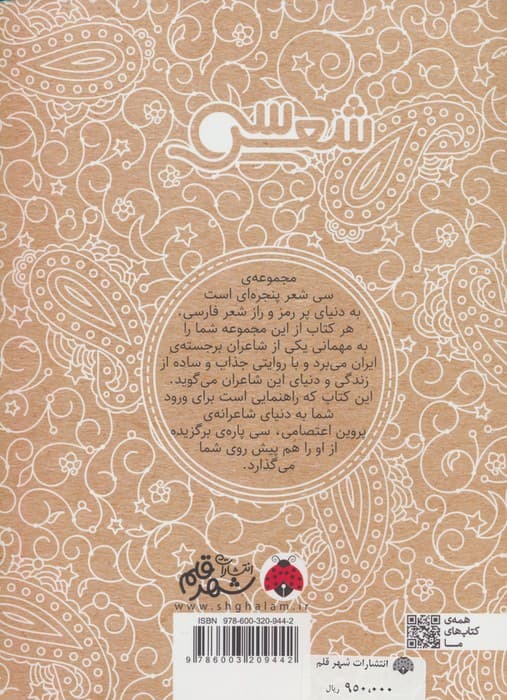 سی شعر
مجموعه‌ی
سی شعر پنجره‌ای است
به دنیای پر رمز و راز شعر فارسی،
هر کتاب از این مجموعه شما را
به مهمانی یکی از شاعران برجسته‌ی
ایران می‌برد و با روایتی جذاب و ساده از
زندگی و دنیای این شاعران می‌گوید.
این کتاب که راهنمایی است برای ورود
شما به دنیای شاعرانه‌ی
پروین اعتصامی، سی پاره‌ی برگزیده
از او را هم پیش روی شما
می‌گذارد.
انتشارات
شهر قلم
www.shghalam.ir
ISBN 978-600-320-944-2
9786003209442
همه‌ی
کتاب‌های
ما
انتشارات شهر قلم
۹۵۰,۰۰۰ ریال